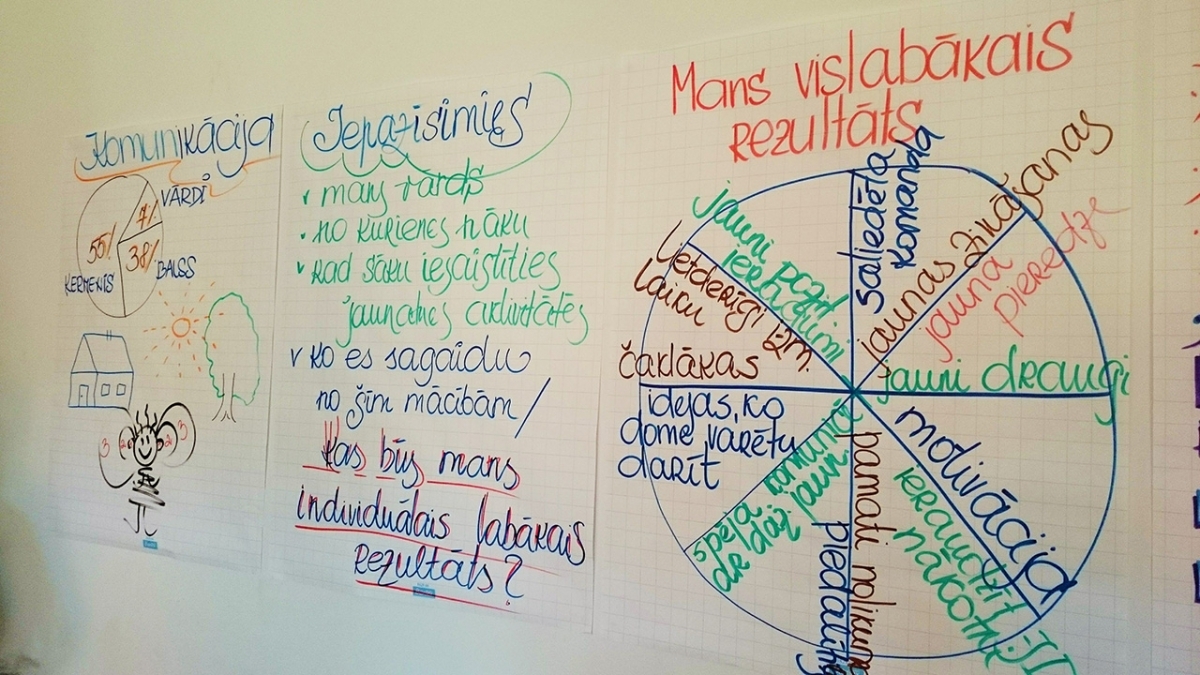 Komunikācija
7%
VĀRDI
55%
ĶERMENIS
38%
BALSS
3 2 2 3
Iepazīsimies
mans vārds
no kurienes nāku
kad sāku iesaistīties
jaunatnes aktivitātēs
ko es sagaidu
no šīm mācībām/
Kas būs mans
individuālais labākais
rezultāts?
Mans vislabākais
rezultāts
saliedēta
komanda
jaunas zināšanas
jauna
pieredze
jauni draugi
motivācija
ieraudzīt
nākotni
pamati nolikuma
piedalīt
spēja komunic
ar daž. jaunie
idejas, ko
dome varētu
darīt
čaklākas
lietderīgi izm.
laiku
jauni pozit
ieradumi